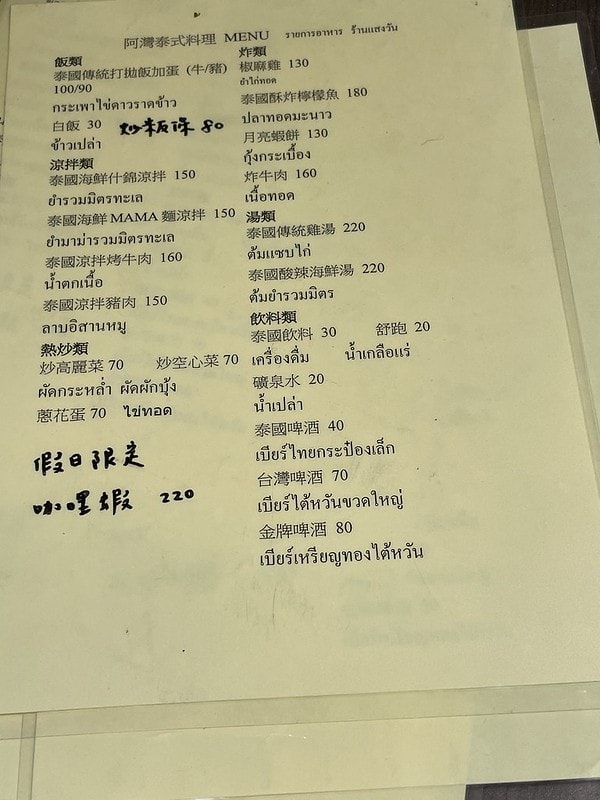 阿灣泰式料理 MENU รายการอาหาร ร้านแสงวัน
飯類
泰國傳統打拋飯加蛋 (牛/豬)
100/90
กระเพาไข่ดาวราดข้าว
白飯 30 炒粄條 80
ข้าวเปล่า
涼拌類
泰國海鮮什錦涼拌 150
ยำรวมมิตรทะเล
泰國海鮮MAMA麵涼拌 150
ยำมาม่ารวมมิตรทะเล
泰國涼拌烤牛肉 160
น้ำตกเนื้อ
泰國涼拌豬肉 150
ลาบอิสานหมู
熱炒類
炒高麗菜 70 炒空心菜 70
ผัดกระหล่ำ ผัดผักบุ้ง
蔥花蛋 70 ไข่ทอด
假日限定
咖哩蝦 220
炸類
椒麻雞 130
ยำไก่ทอด
泰國酥炸檸檬魚 180
ปลาทอดมะนาว
月亮蝦餅 130
กุ้งกระเบื้อง
炸牛肉 160
เนื้อทอด
湯類
泰國傳統雞湯 220
ต้มแซบไก่
泰國酸辣海鮮湯 220
ต้มยำรวมมิตร
飲料類
泰國飲料 30 舒跑 20
เครื่องดื่ม น้ำเกลือแร่
礦泉水 20
น้ำเปล่า
泰國啤酒 40
เบียร์ไทยกระป๋องเล็ก
台灣啤酒 70
เบียร์ไต้หวันขวดใหญ่
金牌啤酒 80
เบียร์เหรียญทองไต้หวัน